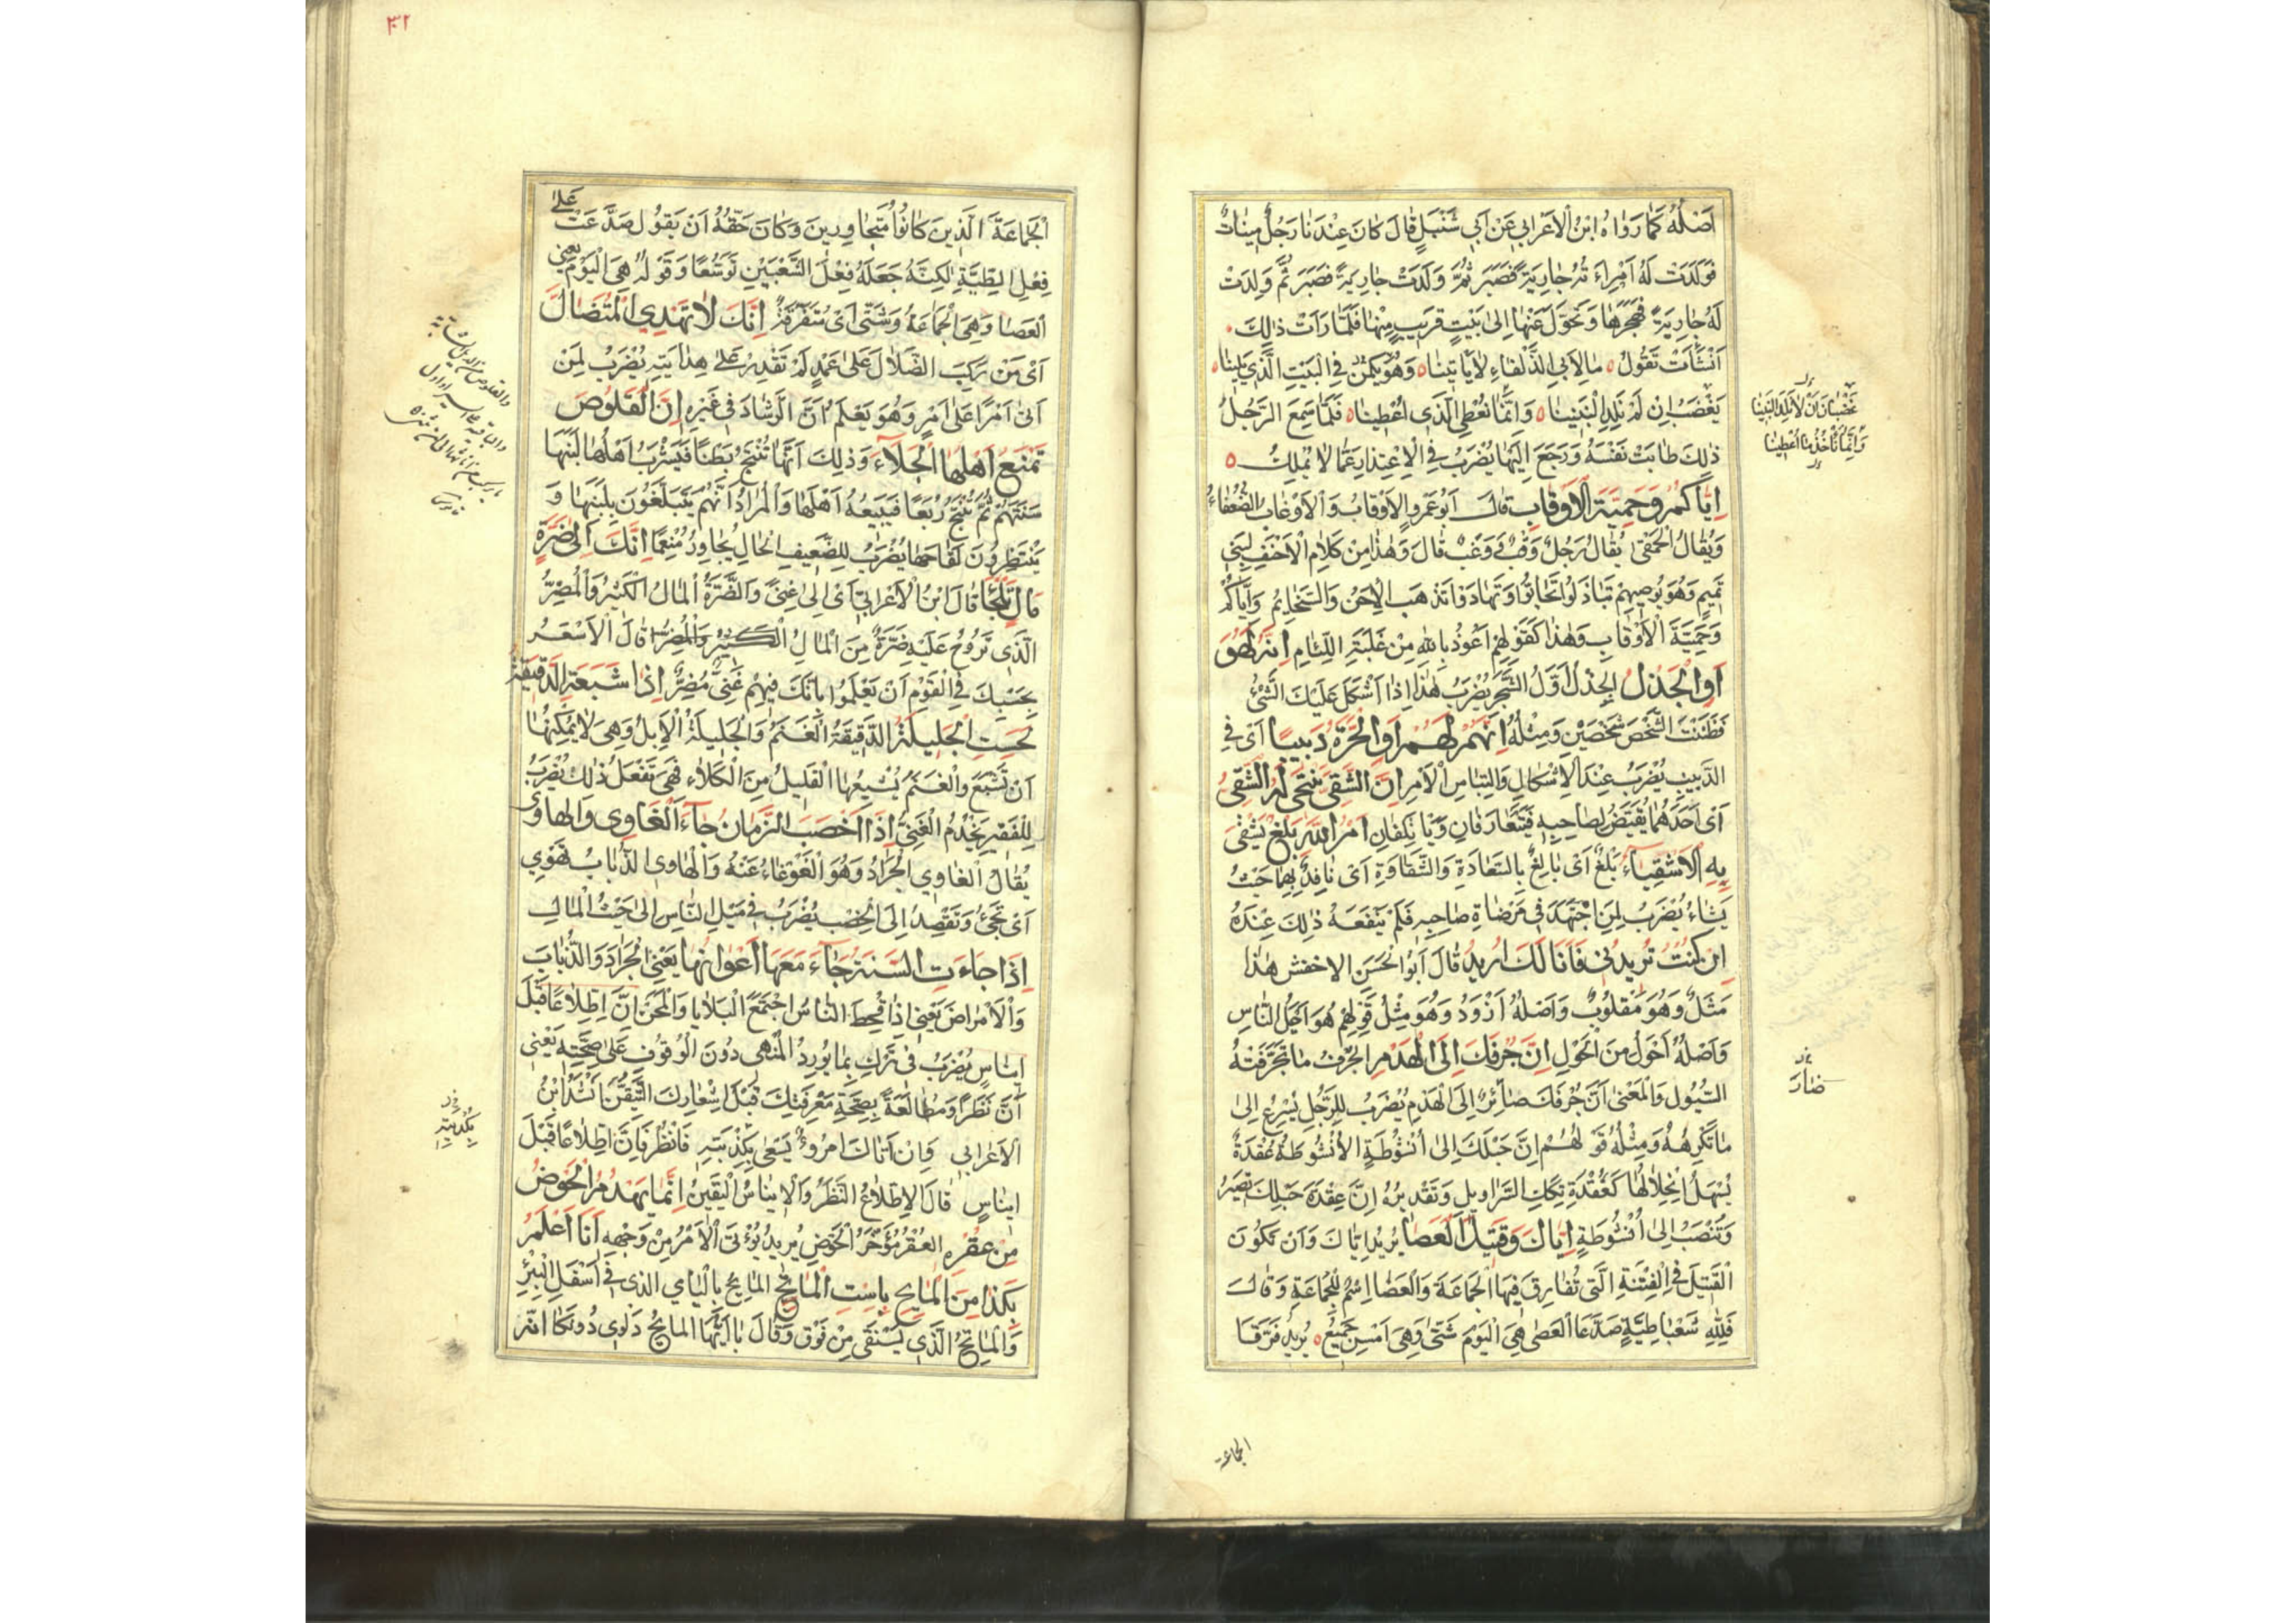 اَصْلُهُ كَمَا رَوَاهُ ابْنُ الْاَعْرَابِي عَنْ اَبِي شَنْبَلٍ قَالَ كَانَ عِنْدَنَا رَجُلٌ مِينَاثٌ
فَوَلَدَتْ لَهُ اَمْرَاَءتُهُ جَارِيَةً فَصَبَرَ ثُمَّ وَلَدَتْ جَارِيَةً فَصَبَرَ ثُمَّ وَلَدَتْ
لَهُ جَارِيَةً فَهَجَرَهَا وَتَحَوَّلَ عَنْهَا اِلَى بَيْتٍ قَرِيبٍ مِنْهَا فَلَمَّا رَاَتْ ذَلِكَ
اَنْشَأَتْ تَقُولُ مَا لِاَبِي الذَّلْفَاءِ لَا يَأْتِينَا وَهُوَ يَكُنْ فِي الْبَيْتِ الَّذِي يَلِينَا
يَغْضَبُ اِنْ لَمْ نَلِدِ الْبَنِينَا وَاِنَّمَا نُعْطِي الَّذِي اُعْطِينَا فَلَمَّا سَمِعَ الرَّجُلُ
ذَلِكَ طَابَتْ نَفْسُهُ وَرَجَعَ اِلَيْهَا يُضْرَبُ فِي الْاِعْتِذَارِ عَمَّا لَا يُمْلَكُ
اِيَّاكُمْ وَحَمِيَّةَ الْاَوْقَابِ قَالَ اَبُو عَمْرٍو الْاَوْقَابُ وَالْاَوْغَابُ الضُّعَفَاءُ
وَيُقَالُ الْحَمْقَى يُقَالُ رَجُلٌ وَقْبٌ وَوَغْبٌ قَالَ وَهَذَا مِنْ كَلَامِ الْاَحْنَفِ لِبَنِي
تَمِيمٍ وَهُوَ يُوصِيهِمْ تَبَاذَلُوا تَحَابُّوا وَتَهَادَوْا تَذْهَبِ الْاِحَنُ وَالسَّخَائِمُ وَاِيَّاكُمْ
وَحَمِيَّةَ الْاَوْقَابِ وَهَذَا كَقَوْلِهِمْ اَعُوذُ بِاللهِ مِنْ غَلَبَةِ اللِّئَامِ اِنَّهُ لَهُوَ
اَوِ الْجِذْلُ الْجِذْلُ اَوَّلُ الشَّجَرِ يُضْرَبُ هَذَا اِذَا اَشْكَلَ عَلَيْكَ الشَّيْءُ
فَظَنَنْتَ الشَّخْصَ شَخْصَيْنِ وَمِثْلُهُ اِنَّهُمْ لَهُمْ اَوِ الْحَرَّةُ دَبِيبًا اَيْ فِي
الدَّبِيبِ يُضْرَبُ عِنْدَ الْاِشْكَالِ وَالْتِبَاسِ الْاَمْرِ اِنَّ الشَّقِيَّ يَنْتَحِي لَهُ الشَّقِيُّ
اَيْ اَحَدُهُمَا يُقَيَّضُ لِصَاحِبِهِ فَيَتَعَارَفَانِ وَيَأْتَلِفَانِ اَمْرُ اللهِ بَلْغٌ يَشْقَى
بِهِ الْاَشْقِيَاءُ بَلْغٌ اَيْ بَالِغٌ بِالسَّعَادَةِ وَالشَّقَاوَةِ اَيْ نَافِذٌ بِهِمَا حَيْثُ
يَشَاءُ يُضْرَبُ لِمَنِ اجْتَهَدَ فِي مَرْضَاةِ صَاحِبِهِ فَلَمْ يَنْفَعْهُ ذَلِكَ عِنْدَهُ
اِنْ كُنْتَ تُرِيدُنِي فَاَنَا لَكَ اَرْيَدُ قَالَ اَبُو الْحَسَنِ الاخفش هَذَا
مَثَلٌ وَهُوَ مَقْلُوبٌ وَاَصْلُهُ اَرْوَدُ وَهُوَ مِثْلُ قَوْلِهِمْ هُوَ اَحْيَلُ النَّاسِ
وَاَصْلُهُ اَحْوَلُ مِنَ الْحَوْلِ اِنَّ جُرْفَكَ اِلَى الْهَدْمِ الْجُرْفُ مَا تَجَرَّفَتْهُ
السُّيُولُ وَالْمَعْنَى اَنَّ جُرْفَكَ صَائِرٌ اِلَى الْهَدْمِ يُضْرَبُ لِلرَّجُلِ يُسْرِعُ اِلَى
مَا تَكْرَهُهُ وَمِثْلُهُ قَوْلُهُمْ اِنَّ حَبْلَكَ اِلَى اُنْشُوطَةٍ الْاُنْشُوطَةُ عُقْدَةٌ
يَسْهُلُ انْحِلَالُهَا كَعُقْدَةِ تِكَكِ السَّرَاوِيلِ وَتَقْدِيرُهُ اِنَّ عُقْدَةَ حَبْلِكَ تَصِيرُ
وَتُنْصَبُ اِلَى اُنْشُوطَةٍ اِيَّاكَ وَقَتِيلَ الْعَصَا يُرِيدُ اِيَّاكَ وَاَنْ تَكُونَ
الْقَتِيلَ فِي الْفِتْنَةِ الَّتِي تُفَارِقُ فِيهَا الْجَمَاعَةَ وَالْعَصَا اِسْمٌ لِلْجَمَاعَةِ وَقَالَ
فَلِلّهِ شَعْبَا طِيَّةٍ صَدَّعَا الْعَصَى هِيَ الْيَوْمَ شَتَّى وَهِيَ اَمْسِ جَمِيعُ يُرِيدُ فَرَّقَا
غَضْبَانَ اَنْ لَا نَلِدَ الْبَنِينَا
وَاِنَّمَا نَأْخُذُ مَا اُعْطِينَا
صَارَ
الجماعة
٣١
الْجَمَاعَةَ الَّذِينَ كَانُوا مُتَجَاوِرِينَ وَكَانَ حَقُّهُ اَنْ يَقُولَ صَدَّعَتْ عَلَى
فِعْلِ الطِّيَّةِ لَكِنَّهُ جَعَلَهُ فِعْلَ الشَّعْبَيْنِ تَوَسُّعًا وَقَوْلُهُ هِيَ الْيَوْمَ يَعْنِي
الْعَصَا وَهِيَ الْجَمَاعَةُ وَشَتَّى اَيْ مُتَفَرِّقَةٌ اِنَّكَ لَا تَهْدِي الْمُتَضَالَّ
اَيْ مَنْ رَكِبَ الضَّلَالَ عَلَى عَمْدٍ لَمْ تَقْدِرْ عَلَى هِدَايَتِهِ يُضْرَبُ لِمَنْ
اَتَى اَمْرًا عَلَى اَمْرٍ وَهُوَ يَعْلَمُ اَنَّ الرَّشَادَ فِي غَيْرِهِ اِنَّ الْقَلُوصَ
تَمْنَعُ اَهْلَهَا الْجَلَاءَ وَذَلِكَ اَنَّهَا تُنْتَجُ بَطْنًا فَيَشْرَبُ اَهْلُهَا لَبَنَهَا
سَنَتَهُمْ ثُمَّ تُنْتَجُ رُبَعًا فَيَبِيعُهُ اَهْلُهَا وَالْمُرَادُ اَنَّهُمْ يَتَبَلَّغُونَ بِلَبَنِهَا وَ
يَنْتَظِرُونَ لَقَاحَهَا يُضْرَبُ لِلضَّعِيفِ الْحَالِ يُجَاوِرُ مُنْعِمًا اِنَّكَ اِلَى ضَرَّةِ
مَالٍ تَلْجَأُ قَالَ ابْنُ الْاَعْرَابِيِّ اَيْ اِلَى غِنًى وَالضَّرَّةُ الْمَالُ الْكَثِيرُ وَالْمُضِرُّ
الَّذِي تَرُوحُ عَلَيْهِ ضَرَّةٌ مِنَ الْمَالِ قَالَ الْاَسْعَرُ
بِحَسْبِكَ فِي الْقَوْمِ اَنْ يَعْلَمُوا بِاَنَّكَ فِيهِمْ غَنِيٌّ مُضِرٌّ اِذَا شَبِعَتِ الدَّقِيقَةُ
لَحِسَتِ الْجَلِيلَةُ الدَّقِيقَةُ الْغَنَمُ وَالْجَلِيلَةُ الْاِبِلُ وَهِيَ لَا يُمْكِنُهَا
اَنْ تَشْبَعَ وَالْغَنَمُ يُشْبِعُهَا الْقَلِيلُ مِنَ الْكَلَاءِ فَهِيَ تَفْعَلُ ذَلِكَ يُضْرَبُ
لِلْفَقِيرِ يَخْدُمُ الْغَنِيَّ اِذَا اَخْصَبَ الزَّمَانُ جَاءَ الْغَاوِي وَالْهَاوِي
يُقَالُ الْغَاوِي الْجَرَادُ وَهُوَ الْغَوْغَاءُ عَنْهُ وَالْهَاوِي الذُّبَابُ تَهْوِي
اَيْ تَجِيءُ وَتَقْصِدُ اِلَى الْخِصْبِ يُضْرَبُ فِي مَيْلِ النَّاسِ اِلَى حَيْثُ الْمَالُ
اِذَا جَاءَتِ السَّنَةُ جَاءَ مَعَهَا اَعْوَانُهَا يَعْنِي الْجَرَادَ وَالذُّبَابَ
وَالْاَمْرَاضَ يَعْنِي اِذَا قُحِطَ النَّاسُ اجْتَمَعَ الْبَلَايَا وَالْمِحَنُ اِنَّ اطِّلَاعًا قَبْلَ
اِينَاسٍ يُضْرَبُ فِي تَرْكِ بِمَا يُورِدُ الْمُنْهِي دُونَ الْوُقُوفِ عَلَى صِحَّتِهِ يَعْنِي
اَنَّ نَظَرًا وَمُطَالَعَةً بِصِحَّةِ مَعْرِفَتِكَ قَبْلَ اِشْعَارِكَ التَّيَقُّنَ اَنْشَدَ ابْنُ
الْاَعْرَابِي وَاِنْ اَتَاكَ امْرُؤٌ يَسْعَى بِكِذْبَتِهِ فَانْظُرْ فَاِنَّ اطِّلَاعًا قَبْلَ
اِينَاسٍ قَالَ الْاِطِّلَاعُ النَّظَرُ وَالْاِينَاسُ الْيَقِينُ اِنَّمَا يُهْدَمُ الْحَوْضُ
مِنْ عُقْرِهِ الْعُقْرُ مُؤَخَّرُ الْحَوْضِ يُرِيدُ يُؤْتَى الْاَمْرُ مِنْ وَجْهِهِ اَنَا اَعْلَمُ
بِكَذَا مِنَ الْمَايِحِ بِاسْتِ الْمَاتِحِ الْمَايِحُ بِالْيَاءِ الَّذِي فِي اَسْفَلِ الْبِئْرِ
وَالْمَاتِحُ الَّذِي يَسْتَقِي مِنْ فَوْقُ وَقَالَ يَا اَيُّهَا الْمَايِحُ دَلْوِي دُونَكَا اِنِّي